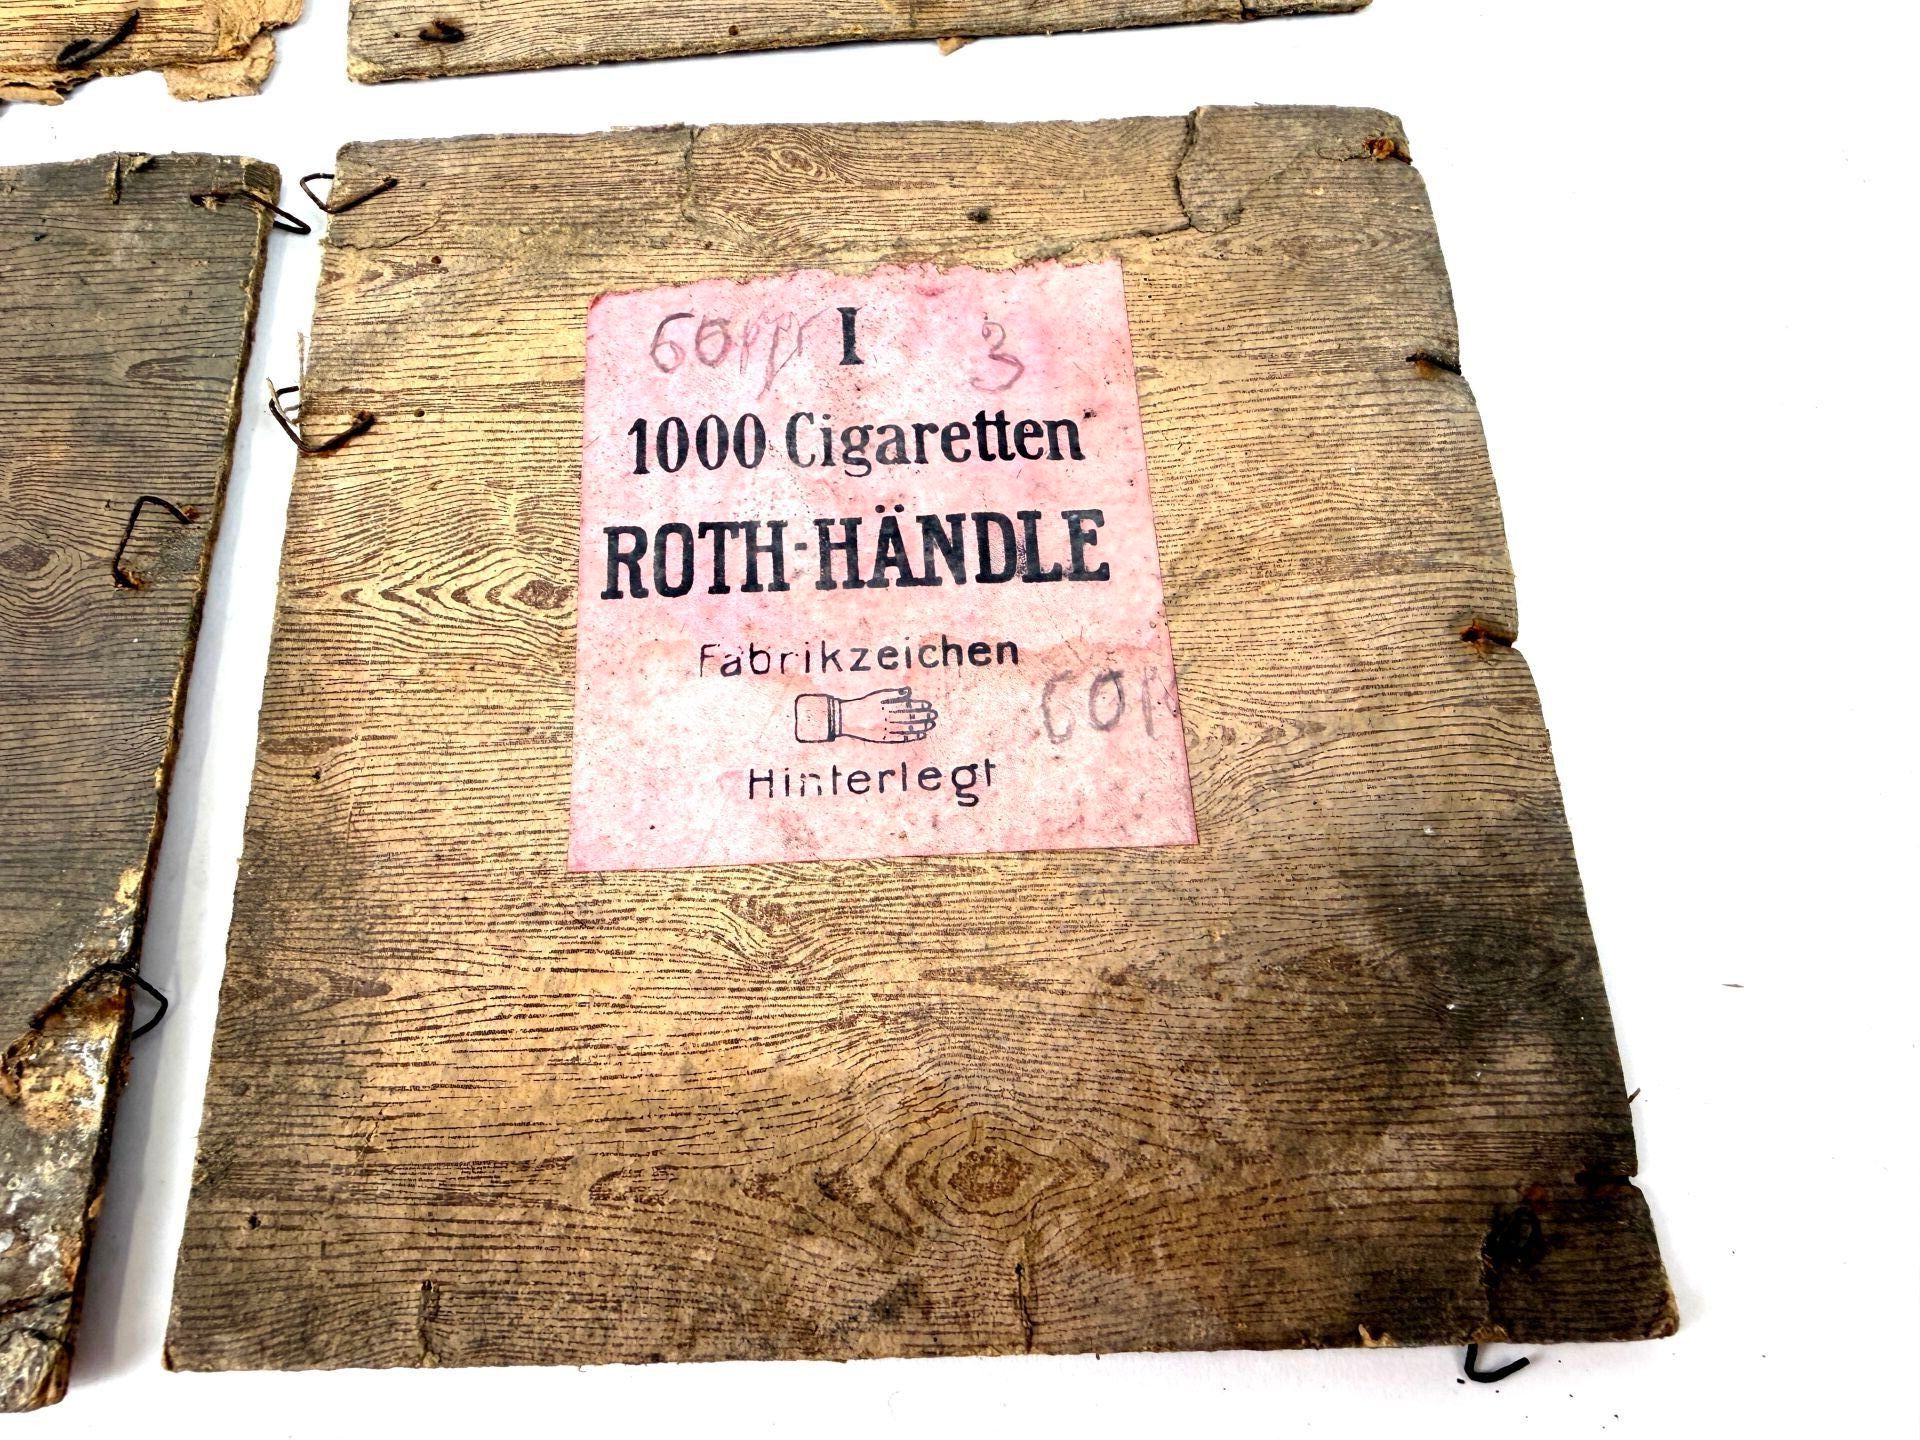 I 3
1000 Cigaretten
ROTH-HÄNDLE
Fabrikzeichen
Hinterlegt